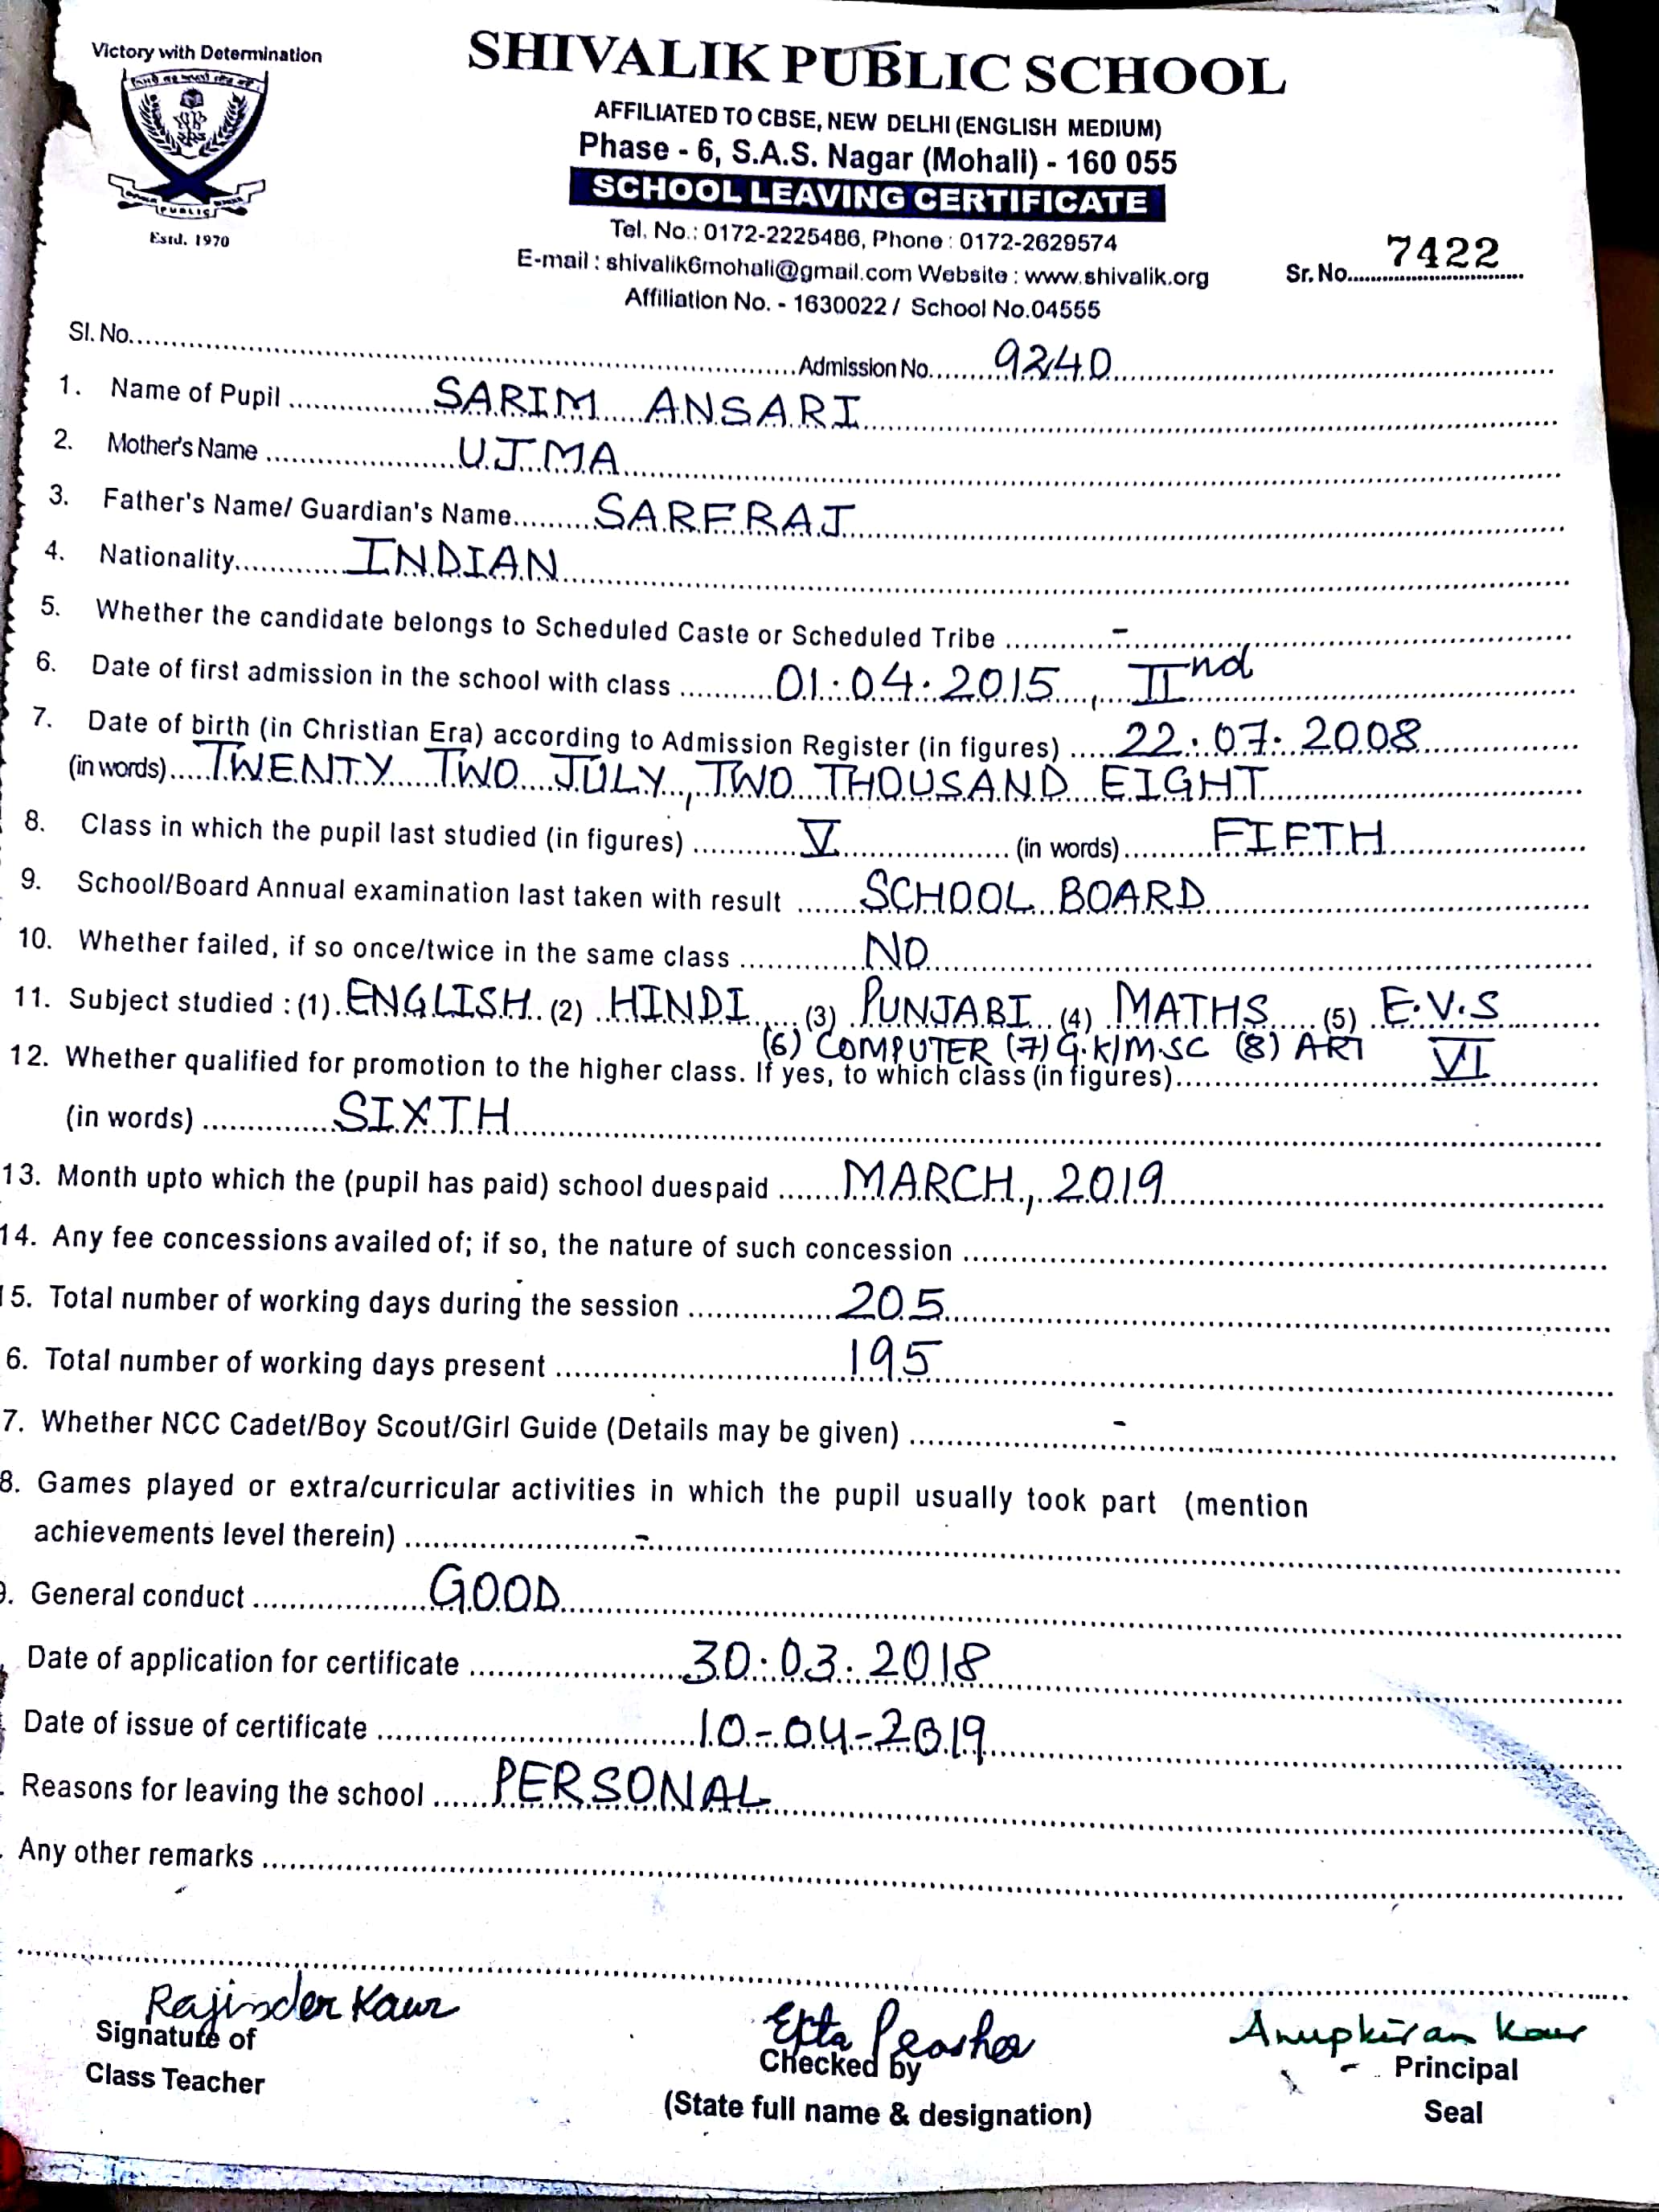 Victory with Determination
SHIVALIK PUBLIC SCHOOL
AFFILIATED TO CBSE, NEW DELHI (ENGLISH MEDIUM)
Phase - 6, S.A.S. Nagar (Mohali) - 160 055
SCHOOL LEAVING CERTIFICATE
PUBLIC
Estd. 1970
Tel. No.: 0172-2225486, Phone : 0172-2629574
E-mail : shivalik6mohali@gmail.com Website : www.shivalik.org
Affiliation No. - 1630022 / School No.04555
Sr. No. 7422
Sl. No. Admission No. 9240
1. Name of Pupil SARIM ANSARI
2. Mother's Name UJMA
3. Father's Name/ Guardian's Name SARFRAJ
4. Nationality INDIAN
5. Whether the candidate belongs to Scheduled Caste or Scheduled Tribe -
6. Date of first admission in the school with class 01.04.2015, IInd
7. Date of birth (in Christian Era) according to Admission Register (in figures) 22.07.2008
(in words) TWENTY TWO JULY, TWO THOUSAND EIGHT
8. Class in which the pupil last studied (in figures) V (in words) FIFTH
9. School/Board Annual examination last taken with result SCHOOL BOARD
10. Whether failed, if so once/twice in the same class NO
11. Subject studied : (1) ENGLISH (2) HINDI (3) PUNJABI (4) MATHS (5) E.V.S
(6) COMPUTER (7) G.K/M.SC (8) ART
12. Whether qualified for promotion to the higher class. If yes, to which class (in figures) VI
(in words) SIXTH
13. Month upto which the (pupil has paid) school duespaid MARCH, 2019
14. Any fee concessions availed of; if so, the nature of such concession
15. Total number of working days during the session 205
6. Total number of working days present 195
7. Whether NCC Cadet/Boy Scout/Girl Guide (Details may be given) -
8. Games played or extra/curricular activities in which the pupil usually took part (mention
achievements level therein) -
9. General conduct GOOD
Date of application for certificate 30.03.2018
Date of issue of certificate 10-04-2019
Reasons for leaving the school PERSONAL
Any other remarks
Rajinder Kaur
Signature of
Class Teacher
Ekta
Checked by
(State full name & designation)
Anupkiran Kaur
Principal
Seal